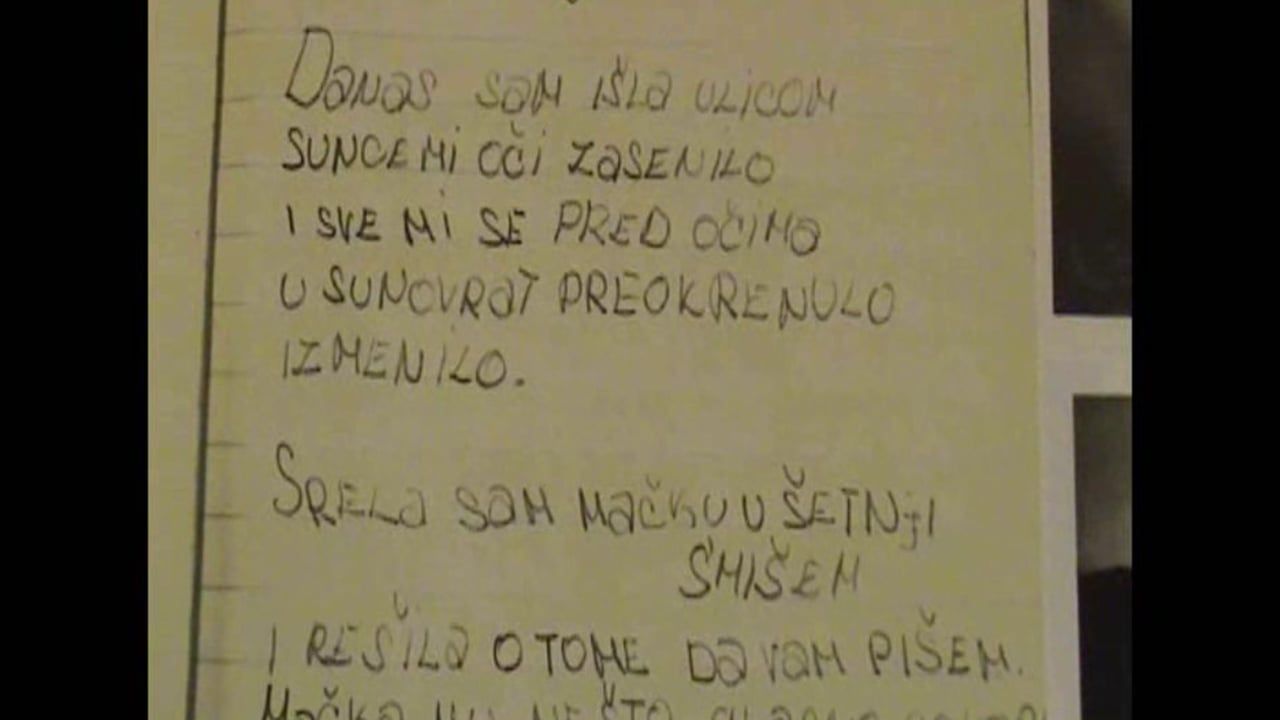 Danas sam išla ulicom
sunce mi oči zasenilo
i sve mi se pred očima
u sunovrat preokrenulo
izmenilo.
Srela sam mačku u šetnji
s'mišem
i rešila o tome da vam pišem.
Mačka mu nešto